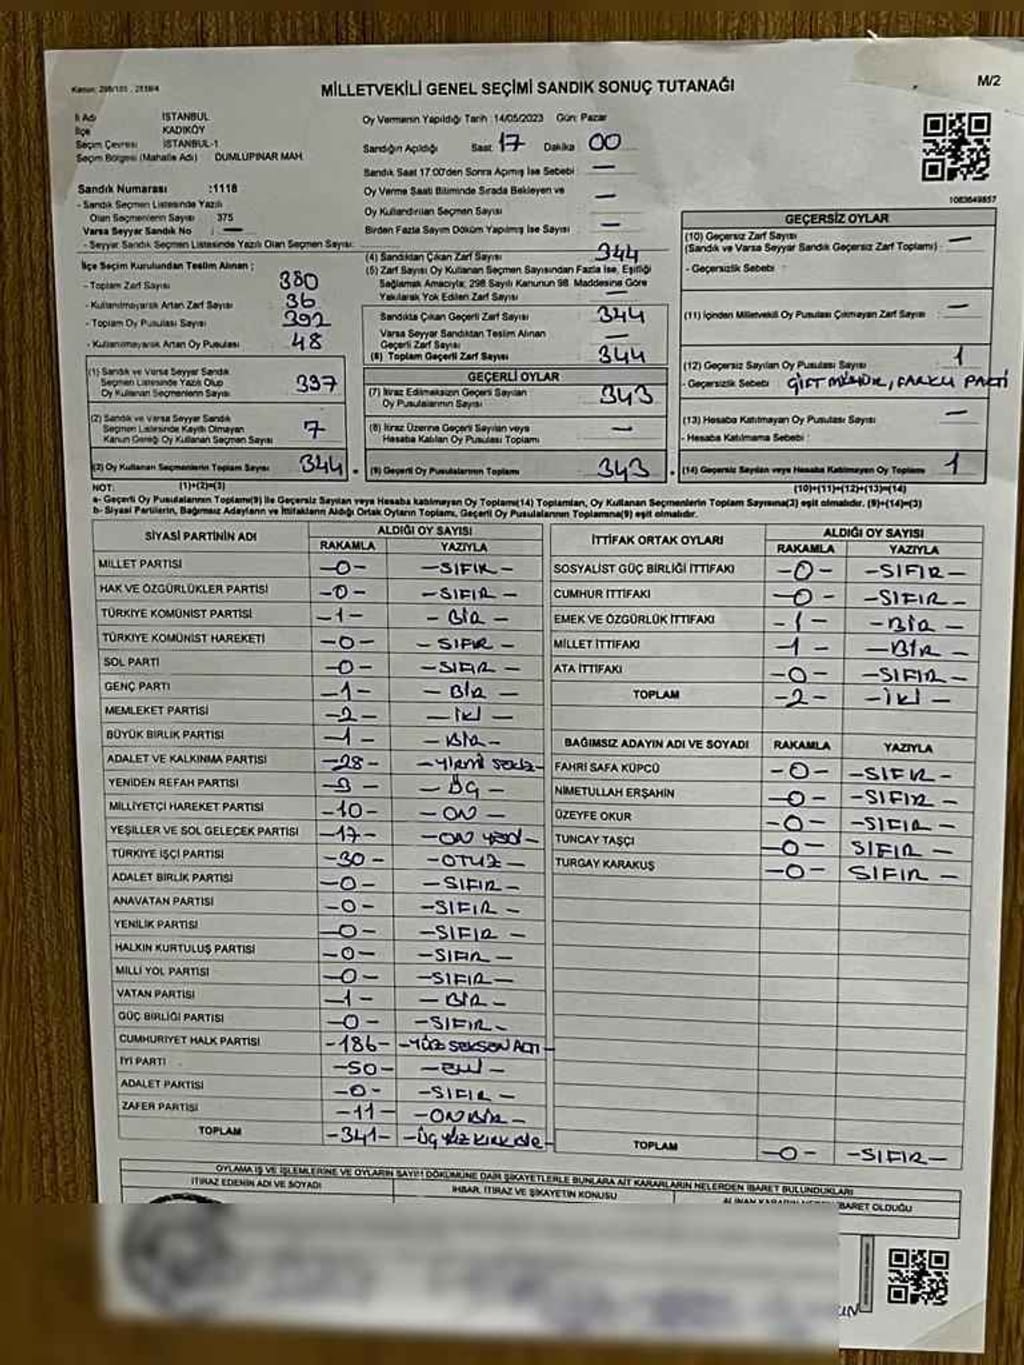 Kanun: 298/105 , 2839/4
MİLLETVEKİLİ GENEL SEÇİMİ SANDIK SONUÇ TUTANAĞI
M/2
İl Adı İSTANBUL
İlçe KADIKÖY
Seçim Çevresi İSTANBUL-1
Seçim Bölgesi (Mahalle Adı) DUMLUPINAR MAH.
Sandık Numarası :1118
- Sandık Seçmen Listesinde Yazılı
Olan Seçmenlerin Sayısı 375
Varsa Seyyar Sandık No : —
- Seyyar Sandık Seçmen Listesinde Yazılı Olan Seçmen Sayısı:
İlçe Seçim Kurulundan Teslim Alınan ;
- Toplam Zarf Sayısı 380
- Kullanılmayarak Artan Zarf Sayısı 36
- Toplam Oy Pusulası Sayısı 392
- Kullanılmayarak Artan Oy Pusulası 48
(1) Sandık ve Varsa Seyyar Sandık
Seçmen Listesinde Yazılı Olup
Oy Kullanan Seçmenlerin Sayısı 337
(2) Sandık ve Varsa Seyyar Sandık
Seçmen Listesinde Kayıtlı Olmayan
Kanun Gereği Oy Kullanan Seçmen Sayısı 7
(3) Oy Kullanan Seçmenlerin Toplam Sayısı 344
(1)+(2)=(3)
Oy Vermenin Yapıldığı Tarih :14/05/2023 Gün: Pazar
Sandığın Açıldığı Saat 17 Dakika 00
Sandık Saat 17:00'den Sonra Açılmış İse Sebebi —
Oy Verme Saati Bitiminde Sırada Bekleyen ve
Oy Kullandırılan Seçmen Sayısı —
Birden Fazla Sayım Döküm Yapılmış İse Sayısı : —
(4) Sandıktan Çıkan Zarf Sayısı 344
(5) Zarf Sayısı Oy Kullanan Seçmen Sayısından Fazla İse, Eşitliği
Sağlamak Amacıyla; 298 Sayılı Kanunun 98. Maddesine Göre
Yakılarak Yok Edilen Zarf Sayısı —
Sandıkta Çıkan Geçerli Zarf Sayısı 344
Varsa Seyyar Sandıktan Teslim Alınan
Geçerli Zarf Sayısı —
(6) Toplam Geçerli Zarf Sayısı 344
GEÇERLİ OYLAR
(7) İtiraz Edilmeksizin Geçerli Sayılan
Oy Pusulalarının Sayısı 343
(8) İtiraz Üzerine Geçerli Sayılan veya
Hesaba Katılan Oy Pusulası Toplamı —
(9) Geçerli Oy Pusulalarının Toplamı 343
1083649857
GEÇERSİZ OYLAR
(10) Geçersiz Zarf Sayısı
(Sandık ve Varsa Seyyar Sandık Geçersiz Zarf Toplamı) : —
- Geçersizlik Sebebi :
(11) İçinden Milletvekili Oy Pusulası Çıkmayan Zarf Sayısı : —
(12) Geçersiz Sayılan Oy Pusulası Sayısı 1
- Geçersizlik Sebebi ÇİFT MÜHÜR, FARKLI PARTİ
(13) Hesaba Katılmayan Oy Pusulası Sayısı —
- Hesaba Katılmama Sebebi :
(14) Geçersiz Sayılan veya Hesaba Katılmayan Oy Toplamı 1
(10)+(11)+(12)+(13)=(14)
NOT:
a- Geçerli Oy Pusulalarının Toplamı(9) ile Geçersiz Sayılan veya Hesaba katılmayan Oy Toplamı(14) Toplamları, Oy Kullanan Seçmenlerin Toplam Sayısına(3) eşit olmalıdır. (9)+(14)=(3)
b- Siyasi Partilerin, Bağımsız Adayların ve İttifakların Aldığı Ortak Oyların Toplamı, Geçerli Oy Pusulalarının Toplamına(9) eşit olmalıdır.
SİYASİ PARTİNİN ADI ALDIĞI OY SAYISI
RAKAMLA YAZIYLA
MİLLET PARTİSİ -0- -SIFIR-
HAK VE ÖZGÜRLÜKLER PARTİSİ -0- -SIFIR-
TÜRKİYE KOMÜNİST PARTİSİ -1- -BİR-
TÜRKİYE KOMÜNİST HAREKETİ -0- -SIFIR-
SOL PARTİ -0- -SIFIR-
GENÇ PARTİ -1- -BİR-
MEMLEKET PARTİSİ -2- -İKİ-
BÜYÜK BİRLİK PARTİSİ -1- -BİR-
ADALET VE KALKINMA PARTİSİ -28- -YİRMİ SEKİZ-
YENİDEN REFAH PARTİSİ -3- -ÜÇ-
MİLLİYETÇİ HAREKET PARTİSİ -10- -ON-
YEŞİLLER VE SOL GELECEK PARTİSİ -17- -ON YEDİ-
TÜRKİYE İŞÇİ PARTİSİ -30- -OTUZ-
ADALET BİRLİK PARTİSİ -0- -SIFIR-
ANAVATAN PARTİSİ -0- -SIFIR-
YENİLİK PARTİSİ -0- -SIFIR-
HALKIN KURTULUŞ PARTİSİ -0- -SIFIR-
MİLLİ YOL PARTİSİ -0- -SIFIR-
VATAN PARTİSİ -1- -BİR-
GÜÇ BİRLİĞİ PARTİSİ -0- -SIFIR-
CUMHURİYET HALK PARTİSİ -186- -YÜZ SEKSEN ALTI-
İYİ PARTİ -50- -ELLİ-
ADALET PARTİSİ -0- -SIFIR-
ZAFER PARTİSİ -11- -ON BİR-
TOPLAM -341- -ÜÇ YÜZ KIRK BİR-
İTTİFAK ORTAK OYLARI ALDIĞI OY SAYISI
RAKAMLA YAZIYLA
SOSYALİST GÜÇ BİRLİĞİ İTTİFAKI -0- -SIFIR-
CUMHUR İTTİFAKI -0- -SIFIR-
EMEK VE ÖZGÜRLÜK İTTİFAKI -1- -BİR-
MİLLET İTTİFAKI -1- -BİR-
ATA İTTİFAKI -0- -SIFIR-
TOPLAM -2- -İKİ-
BAĞIMSIZ ADAYIN ADI VE SOYADI RAKAMLA YAZIYLA
FAHRİ SAFA KÜPCÜ -0- -SIFIR-
NİMETULLAH ERŞAHİN -0- -SIFIR-
ÜZEYFE OKUR -0- -SIFIR-
TUNCAY TAŞÇI -0- SIFIR-
TURGAY KARAKUŞ -0- SIFIR-
TOPLAM -0- -SIFIR-
OYLAMA İŞ VE İŞLEMLERİNE VE OYLARIN SAYIM DÖKÜMÜNE DAİR ŞİKAYETLERLE BUNLARA AİT KARARLARIN NELERDEN İBARET BULUNDUKLARI
İTİRAZ EDENİN ADI VE SOYADI İHBAR, İTİRAZ VE ŞİKAYETİN KONUSU ALINAN KARARIN NEDEN İBARET OLDUĞU